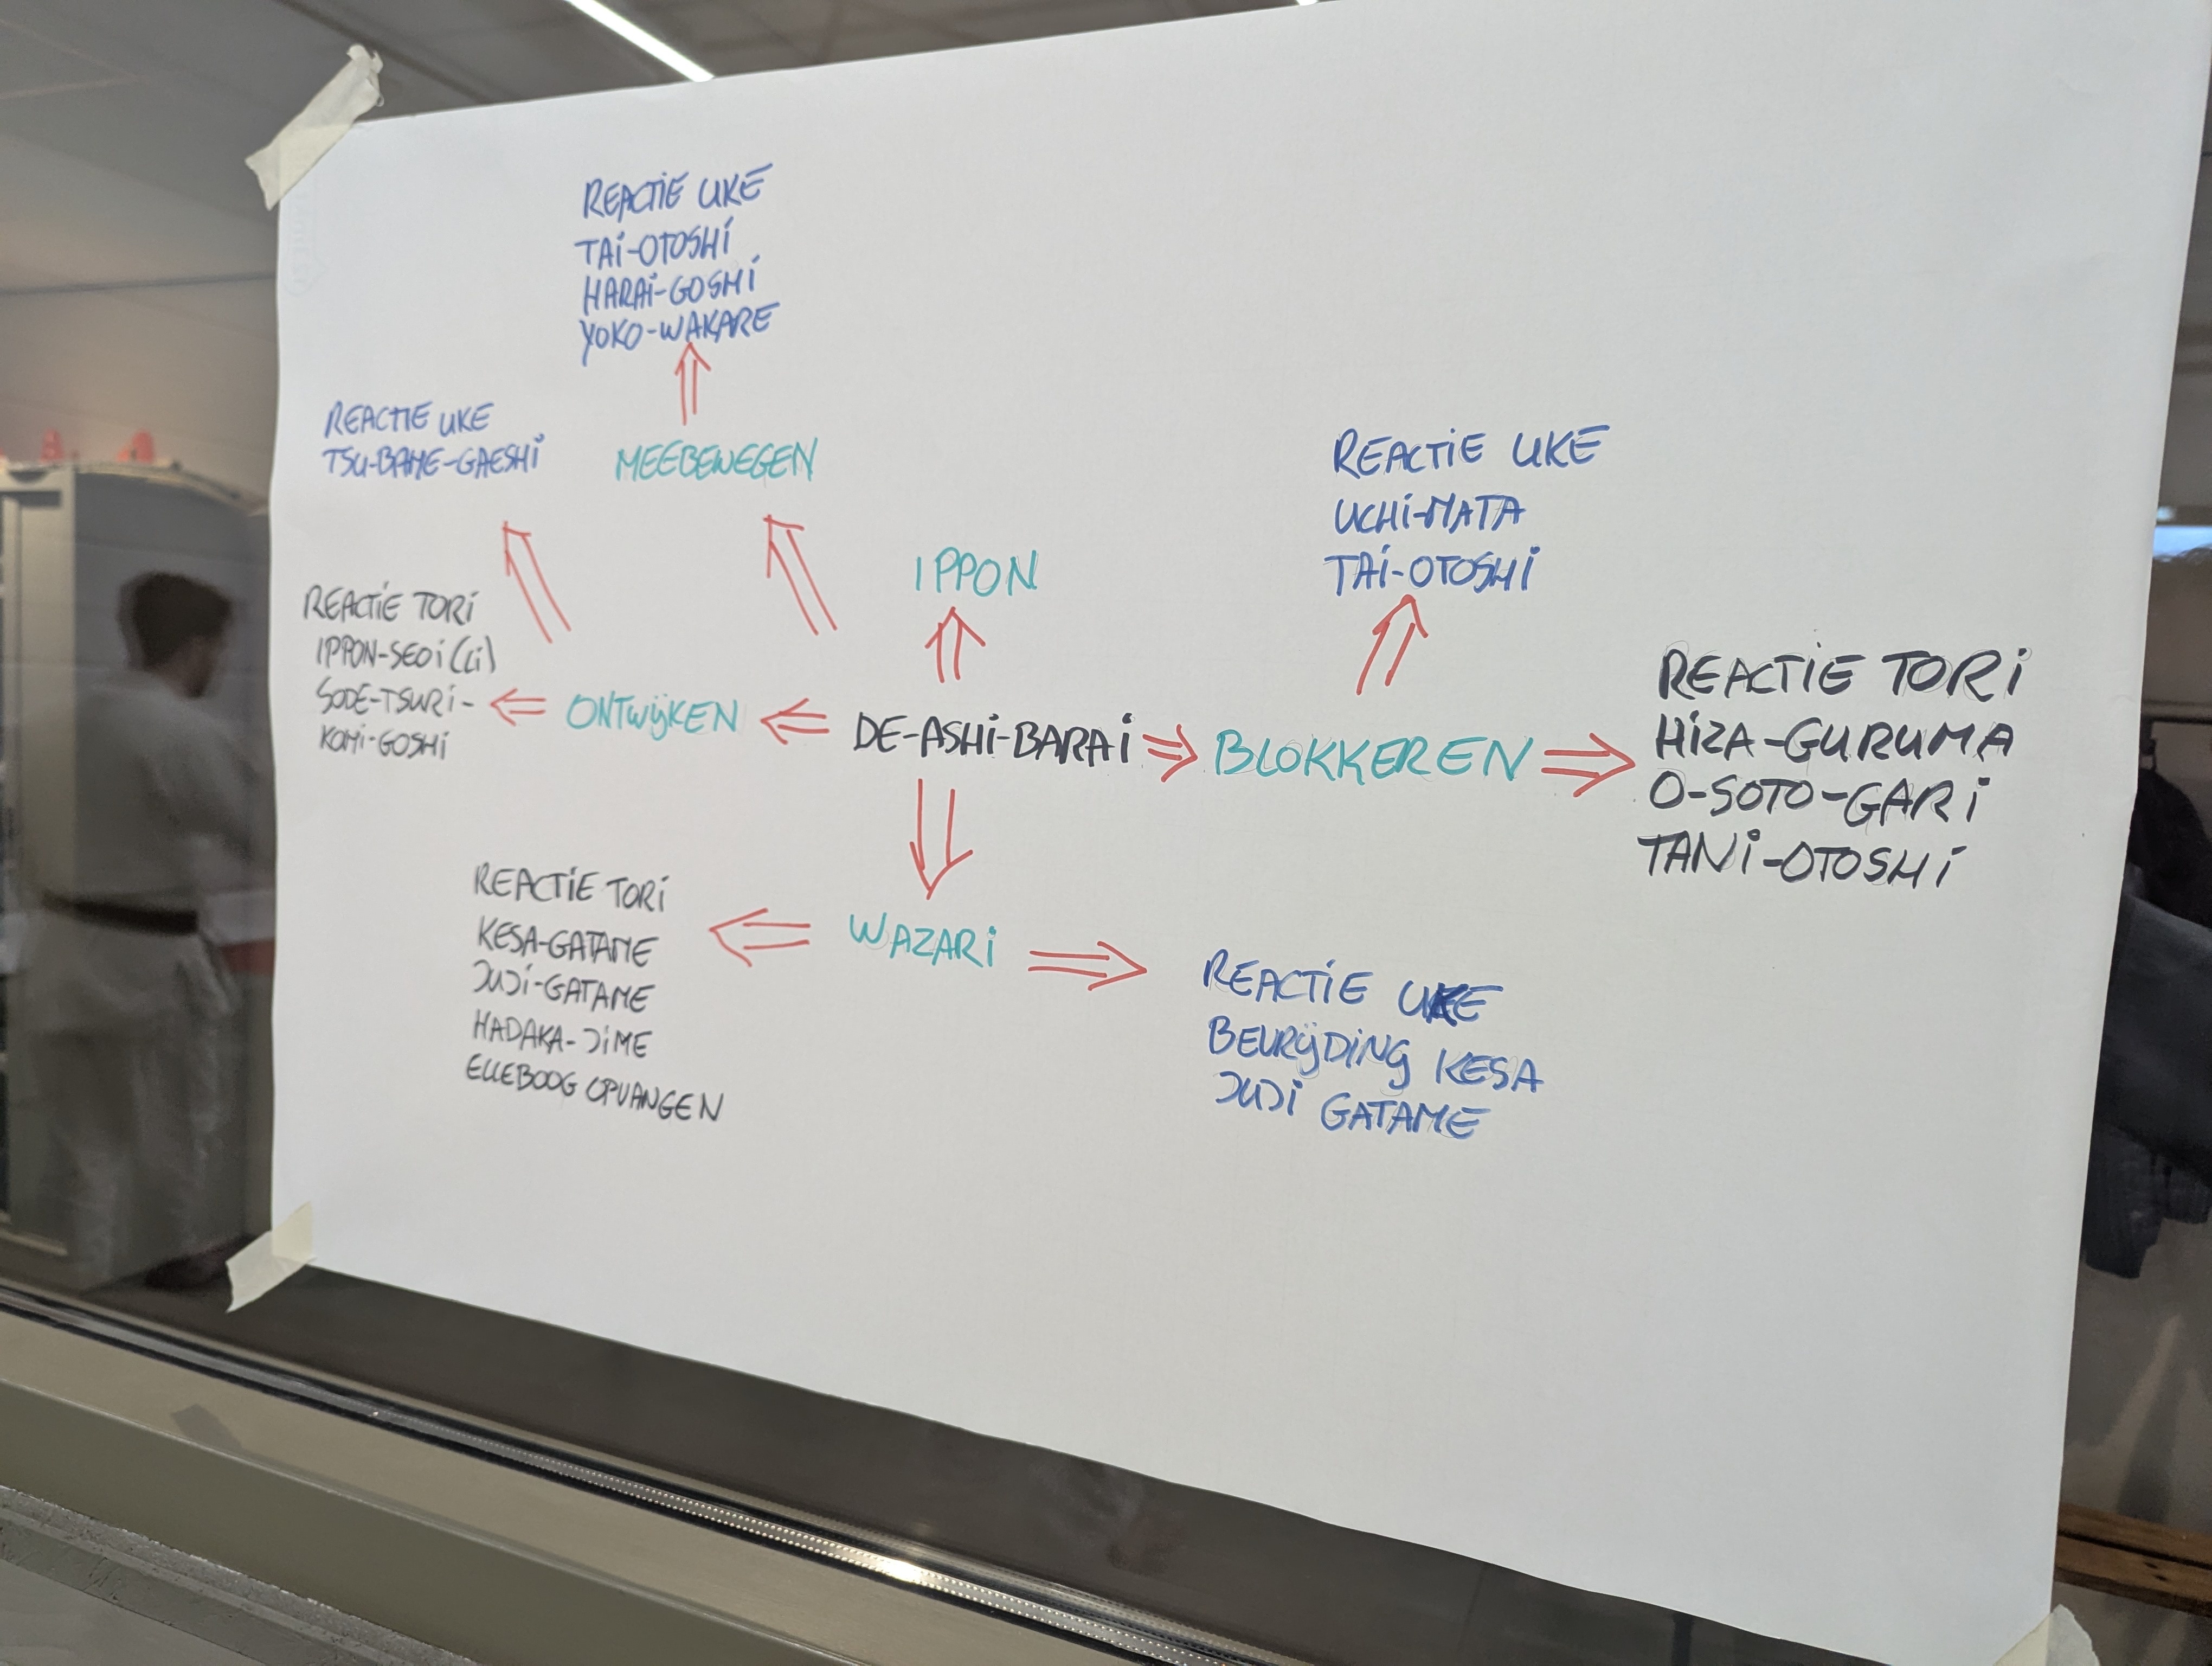 REACTIE UKE
TAI-OTOSHI
HARAI-GOSHI
YOKO-WAKARE
REACTIE UKE
TSU-BAME-GAESHI
MEEBEWEGEN
REACTIE UKE
UCHI-MATA
TAI-OTOSHI
IPPON
REACTIE TORI
IPPON-SEOI (Li)
SODE-TSURI-
KOMI-GOSHI
ONTWIJKEN
DE-ASHI-BARAI
BLOKKEREN
REACTIE TORI
HIZA-GURUMA
O-SOTO-GARI
TANI-OTOSHI
REACTIE TORI
KESA-GATAME
JUJI-GATAME
HADAKA-JIME
ELLEBOOG OPVANGEN
WAZARI
REACTIE UKE
BEVRIJDING KESA
JUJI GATAME